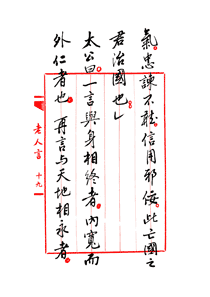 氣。忠諫不能信用邪佞。此亡國之
君治國也。」
太公曰。一言與身相終者。內寬而
外仁者也。再言与天地相永者。
老人言 十九